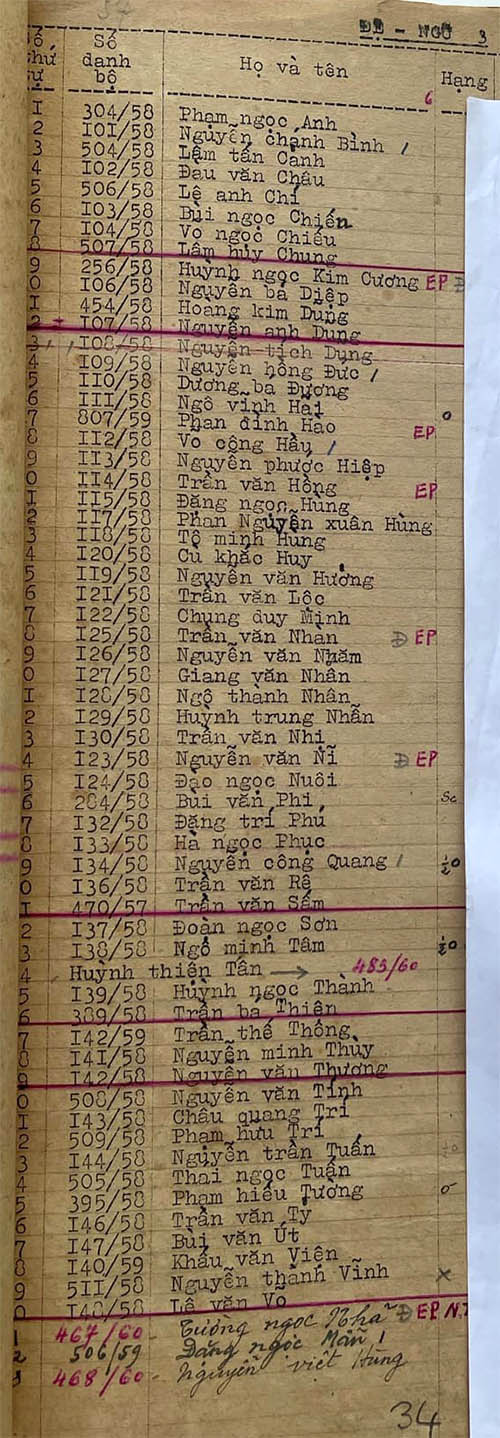 ĐỆ - NGŨ 3
Số thứ tự Số danh bộ Họ và tên Hạng
I 304/58 Phạm ngọc Anh
2 I0I/58 Nguyễn chánh Bình /
3 504/58 Lâm tấn Cảnh
4 I02/58 Đau văn Châu
5 506/58 Lê anh Chí
6 I03/58 Bùi ngọc Chiến
7 I04/58 Vo ngọc Chiêu
8 507/58 Lâm hủy Chung
9 256/58 Huỳnh ngọc Kim Cương EP Đ
0 I06/58 Nguyễn bá Diệp
I 454/58 Hoàng kim Dung
2 I07/58 Nguyễn anh Dung
3 I08/58 Nguyễn tích Dung
4 I09/58 Nguyễn hồng Đức /
5 II0/58 Dương bá Đương
6 III/58 Ngô vĩnh Hải
7 807/59 Phan đình Hào o
8 II2/58 Vo công Hầu / EP
9 II3/58 Nguyễn phước Hiệp
0 II4/58 Trần văn Hồng EP
I II5/58 Đặng ngọc Hùng
2 II7/58 Phan Nguyễn xuân Hùng
3 II8/58 Tô minh Hung
4 I20/58 Cù khắc Huy
5 II9/58 Nguyễn văn Hương
6 I2I/58 Trần văn Lộc
7 I22/58 Chung duy Minh
8 I25/58 Trần văn Nhan Đ EP
9 I26/58 Nguyễn văn Nhăm
0 I27/58 Giang văn Nhân
I I28/58 Ngô thành Nhân
2 I29/58 Huỳnh trung Nhẫn
3 I30/58 Trần văn Nhị
4 I23/58 Nguyễn văn Ni Đ EP
5 I24/58 Đào ngọc Nuôi
6 284/58 Bùi văn Phi Sc
7 I32/58 Đặng trí Phú
8 I33/58 Hà ngọc Phục
9 I34/58 Nguyễn công Quang /
0 I36/58 Trần văn Rê
I 470/57 Trần văn Sấm
2 I37/58 Đoàn ngọc Sơn
3 I38/58 Ngô minh Tâm
4 Huỳnh thiện Tân → 483/60
5 I39/58 Huỳnh ngọc Thành
6 389/58 Trần bá Thiện
7 I42/59 Trần thế Thông
8 I4I/58 Nguyễn minh Thùy
9 I42/58 Nguyễn văn Thương
0 508/58 Nguyễn văn Tính
I I43/58 Châu quang Trí
2 509/58 Phạm hữu Trí
3 I44/58 Nguyễn trần Tuấn
4 505/58 Thái ngọc Tuấn
5 395/58 Phạm hiếu Tường o
6 I46/58 Trần văn Tỷ
7 I47/58 Bùi văn Út
8 I40/59 Khấu văn Viện
9 5II/58 Nguyễn thành Vĩnh x
0 I48/58 Lê văn Vo
1 467/60 - Tường ngọc Nhã Đ EP N.T
2 506/59 Đặng ngọc Mẫn /
3 468/60 - Nguyễn việt Hùng
34